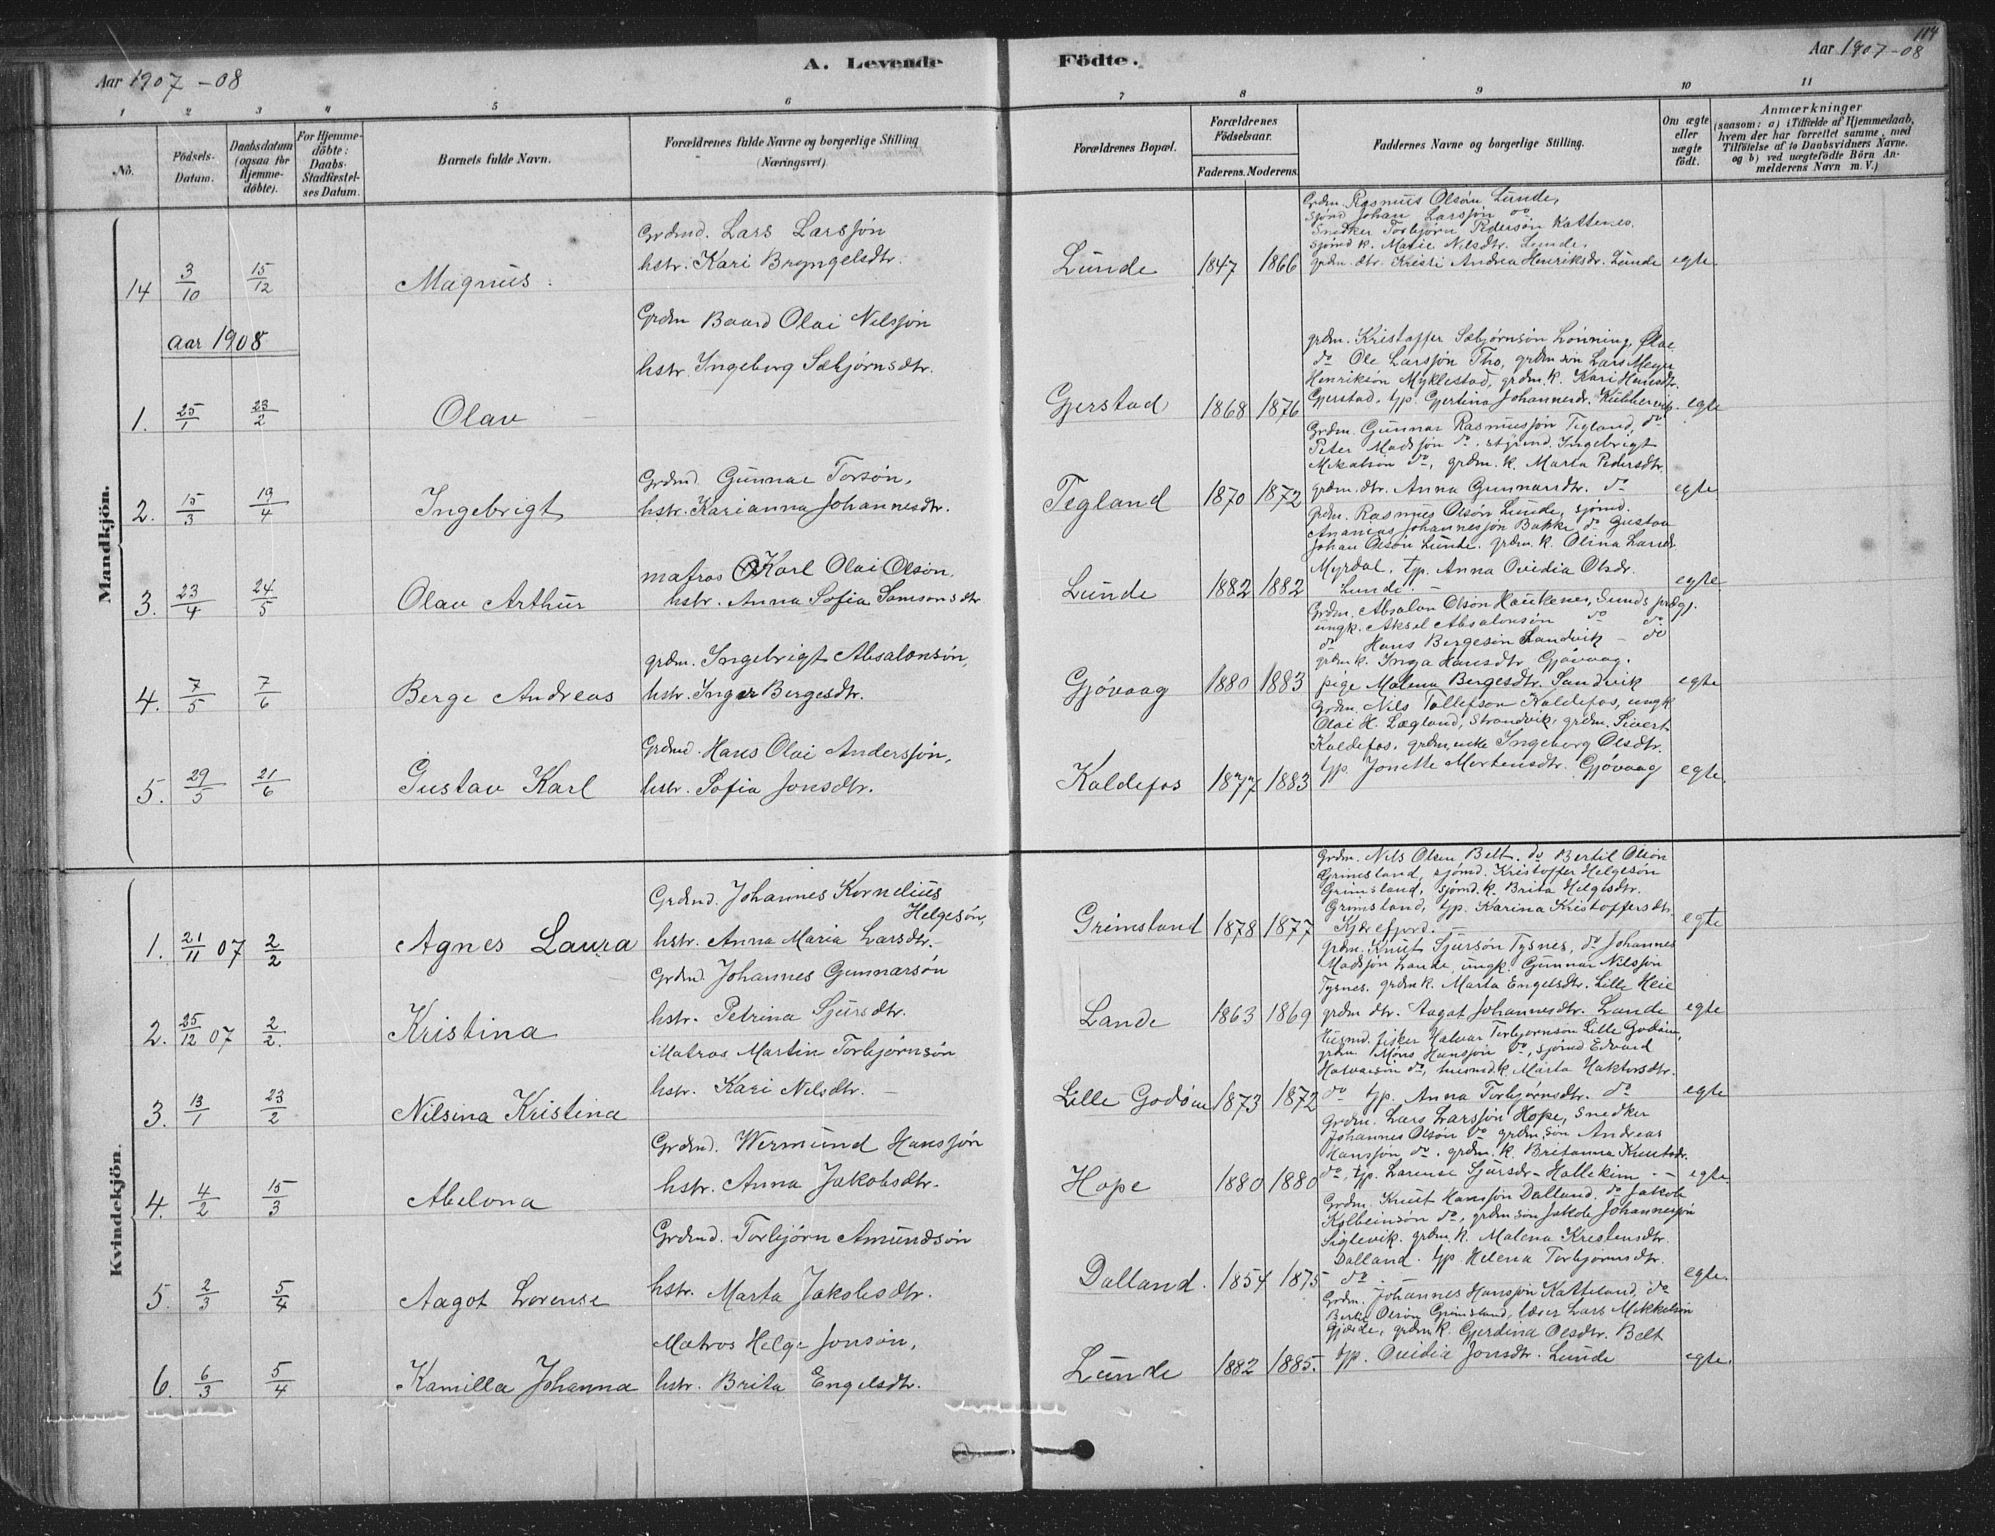 114
Aar 1907-08
A. Levende Födte.
Aar 1907-08
1 2 3 4 5 6 7 8 9 10 11
No.
Födsels-Datum.
Daabsdatum (ogsaa for Hjemmedöbte).
For Hjemmedöbte: Daabs-Stadfæstelses Datum.
Barnets fulde Navn.
Forældrenes fulde Navne og borgerlige Stilling (Næringsvei)
Forældrenes Bopæl.
Forældrenes Födselsaar.
Faderens. Moderens.
Faddernes Navne og borgerlige Stilling.
Om ægte eller uægte födt.
Anmærkninger
(saasom: a) i Tilfælde af Hjemmedaab, hvem der har forrettet samme, med Tilföielse af to Daabsvidners Navne. og b) ved uægtefödte Börn Anmelderens Navn m. V.)
Mandkjön.
14 3/10 15/12 Magnus.
Grdmd. Lars Larssøn
hstr. Kari Bryngelsdtr.
Lunde 1847 1866
Grdm. Rasmus Olsøn Lunde,
sjømd Johan Larssøn do
Snedker Torbjørn Pedersøn Kattenes.
sjømd k. Marie Nilsdtr. Lunde,
grdm. dtr. Kristi Andrea Henriksdr. Lunde
egte.
Aar 1908
1. 25/1 23/2 Olav
Grdm Baard Olai Nilssøn
hstr. Ingeborg Sæbjørnsdtr.
Gjerstad 1868 1876
grdm. Kristoffer Sæbjørnsøn Lønning, Ølve
do Ole Larssøn Tho, grdm søn Lars Meyer
Henriksøn Myklestad, grdm. k. Kari Hansdtr.
Gjerstad, tjp. Gjertina Johannesdr. Kubbervik.
egte
2. 15/3 19/4 Ingebrigt
Grdmd. Gunnar Torsøn,
hstr. Karianna Johannesdtr.
Tegland 1870 1872
Grdm. Gunnar Rasmussøn Tegland, do
Peter Madssøn do. Ingebrigt
Mikalsøn do, grdm. k. Marta Pedersdtr.
grdm. dtr. Anna Gunnarsdtr. do
egte
3. 23/4 24/5 Olav Arthur
matros Karl Olai Olsøn,
hstr. Anna Sofia Samsonsdtr
Lunde 1882 1882
grdm. Rasmus Olsøn Lunde, sjømd.
Ananias Johannessøn Bakke, do Gustav
Johan Olsøn Lunde. grdm. k. Olina Larsdr.
Myrdal. tjp. Anna Ovidia Olsdr.
Lunde. –
egte
4. 7/5 7/6 Berge Andreas
grdm. Ingebrigt Absalonsøn,
hstr. Inger Bergesdtr.
Gjøvaag 1880 1883
Grdm. Absalon Olsøn Haukenes, Sunds prægj.
ungk. Aksel Absalonsøn do do
do Hans Bergesøn Sandvik – do
grdm k. Inga Hansdtr Gjøvaag.
pige Malena Bergesdtr. Sandvik
egte
5. 29/5 21/6 Gustav Karl
Grdmd. Hans Olai Anderssøn,
hstr. Sofia Jonsdtr.
Kaldefos 1877 1883
Grdm. Nils Tollefson Kaldefos, ungk
Olai H. Lægland, Strandvik, grdm. Sivert
Kaldefos, grdm. enke Ingeborg Olsdtr.
tjp. Jonette Mortensdtr. Gjøvaag
egte.
Kvindekjön.
1. 21/11 07 2/2 Agnes Laura
Grdmd. Johannes Kornelius
Helgesøn,
hstr. Anna Maria Larsdtr.
Grimsland 1878 1877
Grdm. Nils Olsen Belt. do Bertil Olsøn
Grimsland, sjømd. Kristoffer Helgesøn
Grimsland, sjømd. k. Brita Helgesdtr.
Grimsland, tjp. Karina Kristoffersdtr
egte
2. 25/12 07 2/2. Kristina
Grdmd. Johannes Gunnarsøn
hstr. Petrina Sjursdtr.
Lande 1863 1869
grdm. Knut Sjursøn Tysnes, do Johannes
Madssøn Lande, ungk. Gunnar Nilssøn
Tysnes. grdm k. Marta Engelsdtr. Lille Heie
grdm dtr. Aagot Johannesdtr. Lande
egte
3. 13/1 23/2 Nilsina Kristina
Matros Martin Torbjørnsøn
hstr. Kari Nilsdtr. –
Lille Godøen 1873 1872
Husmd. fisker Halvar Torbjørnsøn Lille Godøen,
grdm. Møns Hanssøn do, sjømd Edvard
Halvarsøn do, husmd. k. Marta Haktorsdtr.
do tjp. Anna Torbjørnsdtr. do
egte
4. 4/2 15/3 Abelona
Grdmd. Wermund Hanssøn
hstr. Anna Jakobsdtr.
Hope 1880 1880
Grdm. Lars Larssøn Hope, snedker
Johannes Olsøn do grdm. søn Andreas
Hanssøn do. grdm. k. Britanna Knutsdr.
do, tjp. Larense Sjursdr – –
egte
5. 2/3 5/4 Aagot Lorense
Grdmd. Torbjørn Amundsøn
hstr. Marta Jakobsdtr.
Dalland. 1854 1875
Grdm. Knut Hanssøn Dalland. do Jakob
Kolbeinsøn do, grdm søn Jakob Johannessøn
Siglevik. grdm. k. Malena Kristensdtr.
Dalland. tjp Helena Torbjørnsdtr.
do
egte.
6. 6/3 5/4 Kamilla Johanna
Matros Helge Jonsøn,
hstr. Brita Engelsdtr.
Lunde 1882 1885.
Grdm. Johannes Hanssøn Katteland, do
Bertil Olsøn Grimsland, lærer Lars Mikkelsøn
Gjæide, grdm. k. Gjerdina Olsdtr. Belt
tjp. Ovidia Jonsdtr. Lunde
egte.